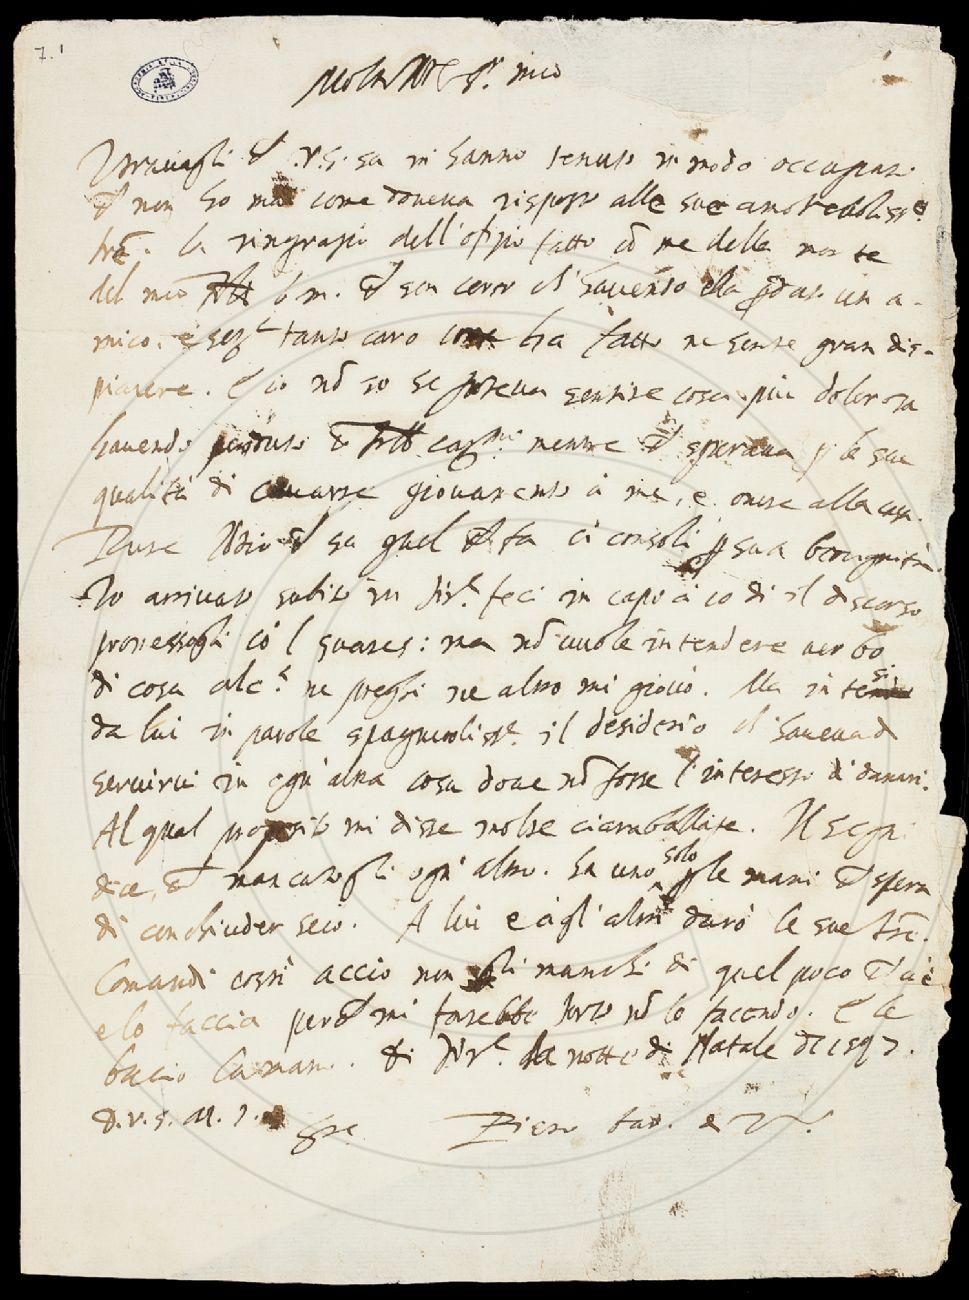 7.1
Molto Ill.re S.r mio
I travagli ch' V.S. sa m'hanno tenuto in modo occupato
ch' non ho mai come doveva risposto alle sue amorevoliss.e
l're. La ringrazio dell'ofizio fatto cō me della morte
del mio b.m. ch' son certo ch' havendo ella p'duto un a-
mico, e tanto caro ha fatto ne sente gran dis-
piacere. E io nō so se poteva sentire cosa più dolorosa
havendo perduto mentre ch' sperava p' le sue
qualità di cavarne giovamento a me, e onore alla casa.
Pure Iddio ch' sa quel ch' fa ci consoli p' sua benignità.
Io arrivato subito in Fir.e feci in capo a co di il discorso
promessogli cō l suares: ma nō vuole intendere verbo
di cosa alc.a ne preghi ne altro mi giovò. Ma intesi
da lui in parole spagnuoliss.e il desiderio ch' haveva d
servirvi in ogn'altra cosa dove nō fosse l'interesso di danari.
Al qual proposito mi disse molte ciarabballate. Il Segni
dice, ch' mancatogli ogn'altro. ha uno solo p' le mani ch' spera
di conchiuder seco. A lui e agl'altri darò le sue l're.
Comandi così acciò non gli manchi di quel poco ch'
e lo faccia però ch' mi farebbe torto nō lo facendo. E le
bacio la mano. di Fir.e la notte di Natale
D.V.S. M. I.